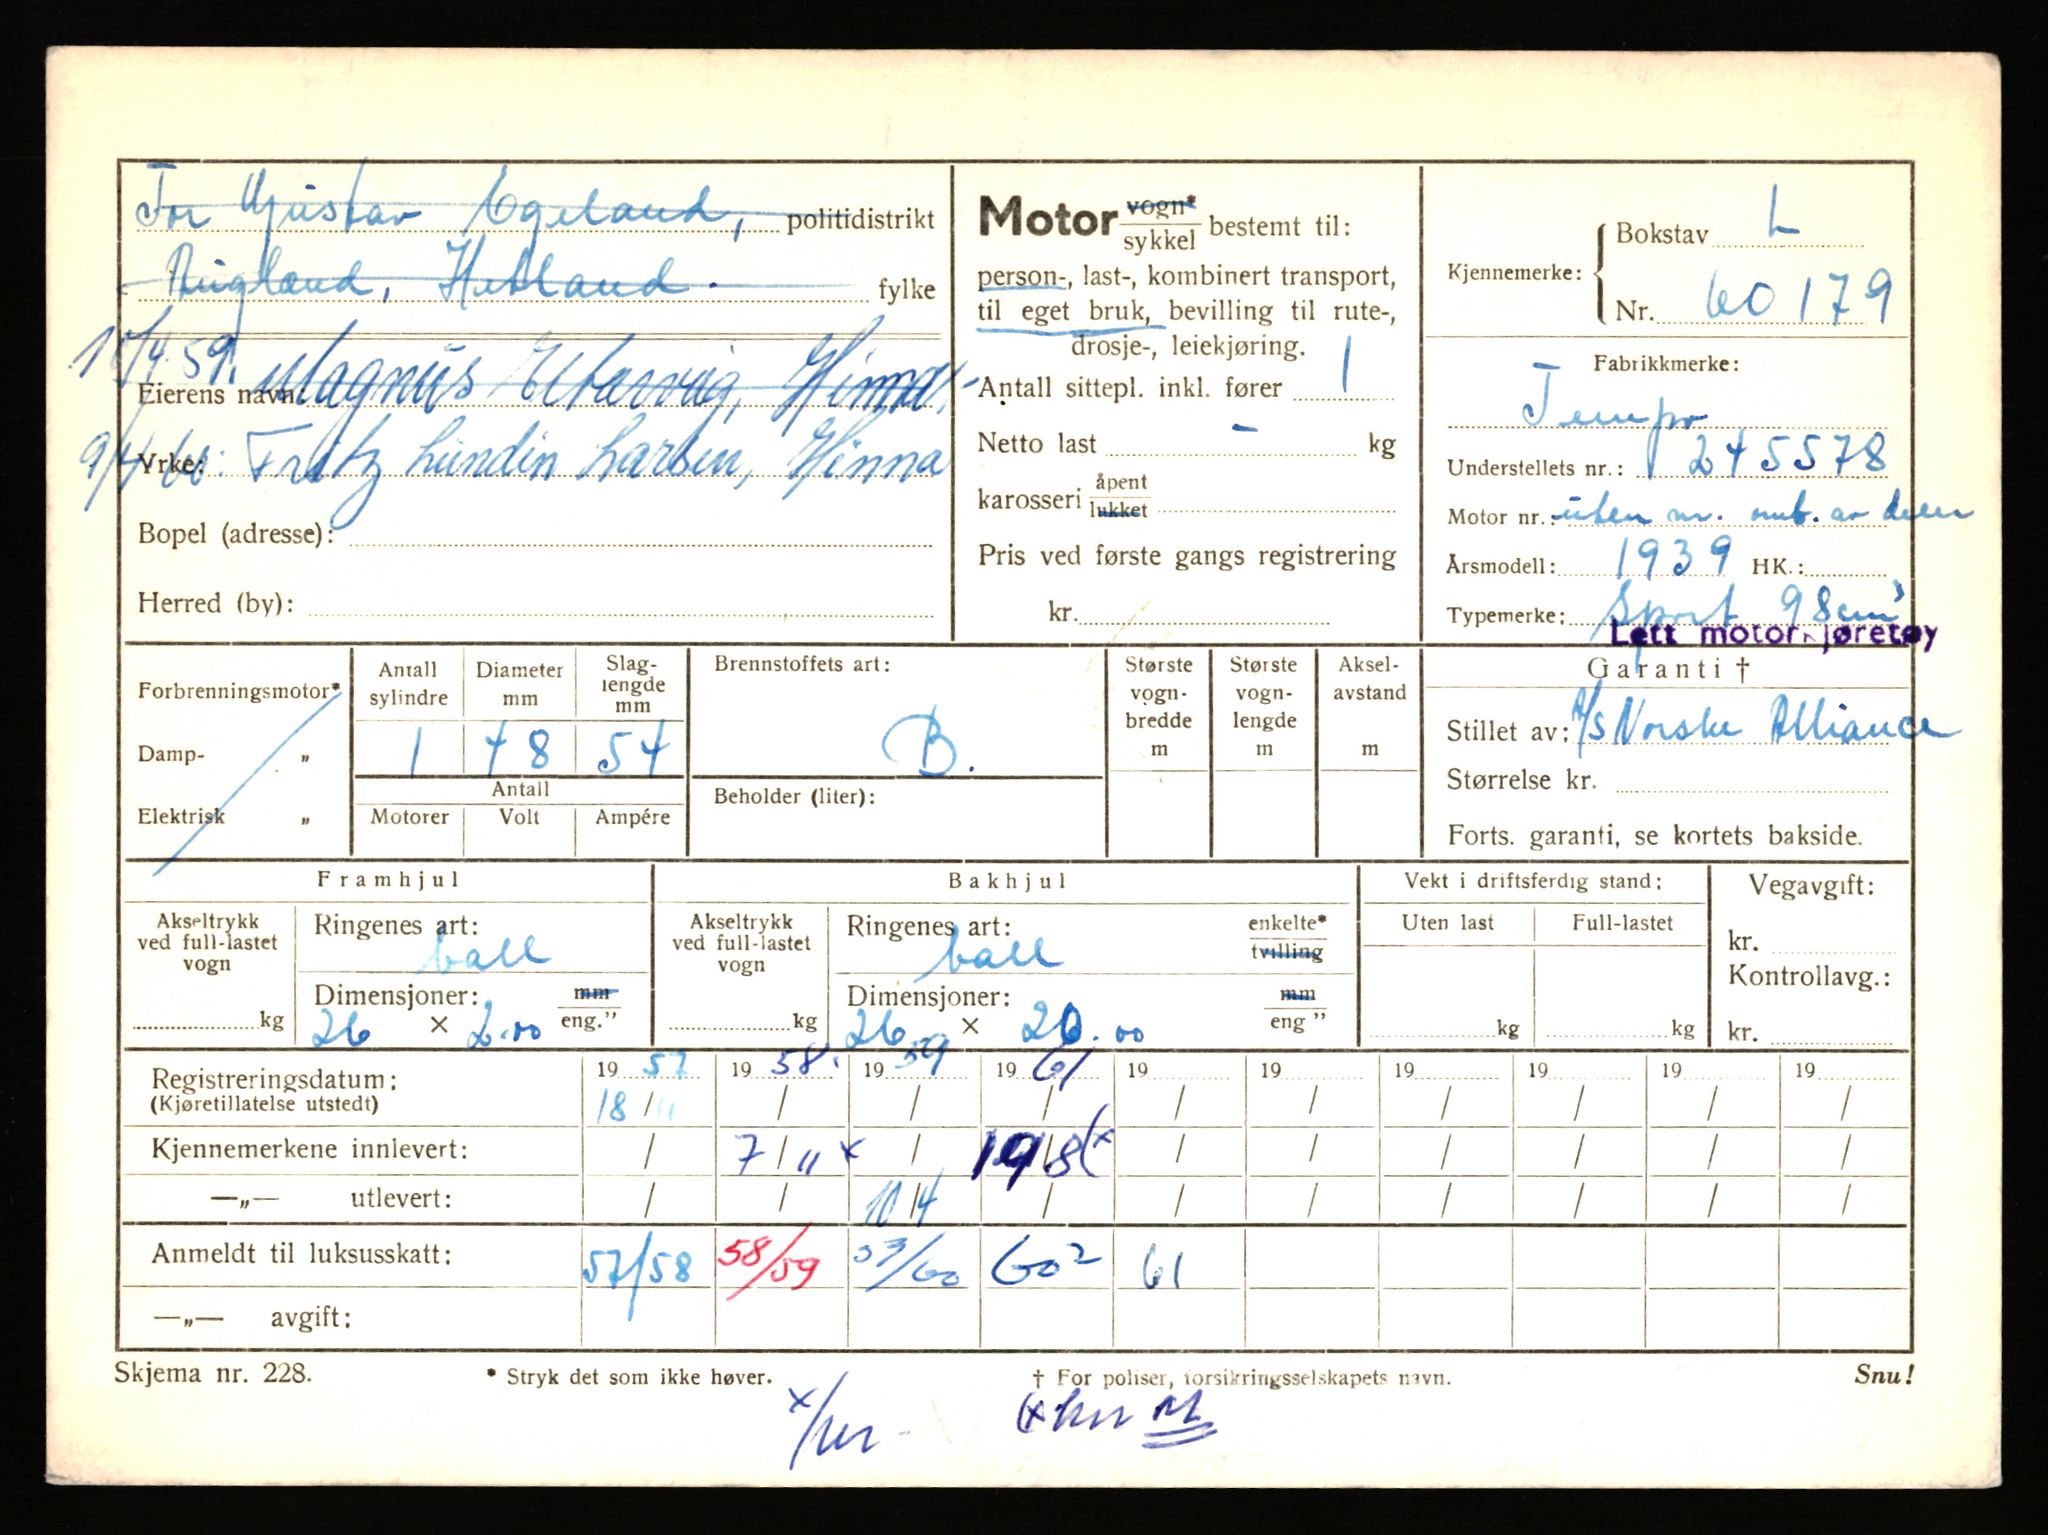 Tor Gustav Egeland, politidistrikt
Auglænd, Hetland. fylke
10/4 59. Magnus
Eierens navn: Hinna.
9/4 60: Fritz Lundin Larsen, Hinna
Yrke:
Bopel (adresse):
Herred (by):
Motor vogn* / sykkel bestemt til:
person-, last-, kombinert transport,
til eget bruk, bevilling til rute-,
drosje-, leiekjøring.
Antall sittepl. inkl. fører 1
Netto last - kg
karosseri åpent / lukket
Pris ved første gangs registrering
kr.
Kjennemerke: Bokstav L
Nr. 60179
Fabrikkmerke:
Tempo
Understellets nr.: 245578
Motor nr.: uten nr. mb. av deler
Årsmodell: 1939 HK.:
Typemerke: Sport 98 cm³
Lett motorkjøretøy
Forbrenningsmotor*
Damp- „
Elektrisk „
Antall sylindre Diameter mm Slag-lengde mm
1 48 54
Antall
Motorer Volt Ampére
Brennstoffets art:
B.
Beholder (liter):
Største vogn-bredde m Største vogn-lengde m Aksel-avstand m
Garanti †
Stillet av: A/S Norske Alliance
Størrelse kr.
Forts. garanti, se kortets bakside.
Framhjul
Akseltrykk ved full-lastet vogn kg
Ringenes art: ball
Dimensjoner: mm / eng.”
26 × 2.00
Bakhjul
Akseltrykk ved full-lastet vogn kg
Ringenes art: ball enkelte* / tvilling
Dimensjoner: mm / eng ”
26 × .00
Vekt i driftsferdig stand:
Uten last Full-lastet
kg kg
Vegavgift:
kr.
Kontrollavg.:
kr.
Registreringsdatum: 19 57 19 58. 19 59 19 61 19 19 19 19 19 19
(Kjøretillatelse utstedt) 18/11 / / / / / / / / /
Kjennemerkene innlevert: / 7/11 x / 19/8 (x / / / / / /
—„— utlevert: / / 10/4 / / / / / / /
Anmeldt til luksusskatt: 57/58 58/59 59/60 60² 61
—„— avgift:
Skjema nr. 228. * Stryk det som ikke høver. † For poliser, forsikringsselskapets navn. Snu!